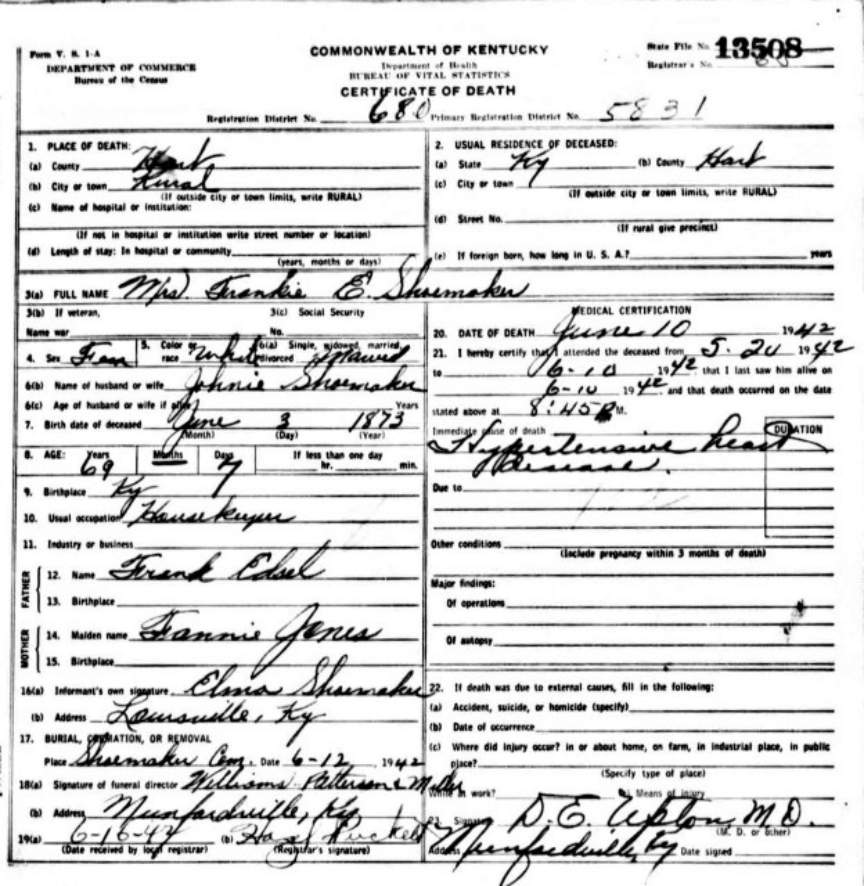 Form V. S. 1-A
DEPARTMENT OF COMMERCE
Bureau of the Census
COMMONWEALTH OF KENTUCKY
Department of Health
BUREAU OF VITAL STATISTICS
CERTIFICATE OF DEATH
State File No. 13508
Registrar's No.
Registration District No. 680 Primary Registration District No. 5831
1. PLACE OF DEATH:
(a) County Hart
(b) City or town Rural
(If outside city or town limits, write RURAL)
(c) Name of hospital or institution:
(If not in hospital or institution write street number or location)
(d) Length of stay: In hospital or community
(years, months or days)
2. USUAL RESIDENCE OF DECEASED:
(a) State Ky (b) County Hart
(c) City or town
(If outside city or town limits, write RURAL)
(d) Street No.
(If rural give precinct)
(e) If foreign born, how long in U. S. A.? years
3(a) FULL NAME Mrs. Frankie E. Shoemaker
3(b) If veteran, 3(c) Social Security
Name war No.
4. Sex Fem 5. Color or race White 6(a) Single, widowed, married, divorced
6(b) Name of husband or wife Johnie Shoemaker
6(c) Age of husband or wife if alive Years
7. Birth date of deceased June 3 1873
(Month) (Day) (Year)
8. AGE: Years Months Days If less than one day
69 7 hr. min.
9. Birthplace Ky
10. Usual occupation Housekeeper
11. Industry or business
FATHER
12. Name Frank Edsel
13. Birthplace
MOTHER
14. Maiden name Fannie Jones
15. Birthplace
16(a) Informant's own signature Elma Shoemaker
(b) Address Louisville, Ky
17. BURIAL, CREMATION, OR REMOVAL
Place Shoemaker Cem. Date 6-12, 1942
18(a) Signature of funeral director Williams Patterson & Miller
(b) Address Munfordville, Ky
19(a) 6-16-42 (b) Puckett
(Date received by local registrar) (Registrar's signature)
MEDICAL CERTIFICATION
20. DATE OF DEATH June 10 1942
21. I hereby certify that I attended the deceased from 5-20 1942
to 6-10 1942, that I last saw him alive on
6-10 1942 and that death occurred on the date
stated above at 8:45 P M.
Immediate cause of death DURATION
Hypertensive heart
disease.
Due to
Other conditions
(Include pregnancy within 3 months of death)
Major findings:
Of operations
Of autopsy
22. If death was due to external causes, fill in the following:
(a) Accident, suicide, or homicide (specify)
(b) Date of occurrence
(c) Where did injury occur? in or about home, on farm, in industrial place, in public
place?
(Specify type of place)
While at work? (e) Means of injury
23. Signature D. E. Upton M.D.
(M. D. or other)
Address Munfordville, Ky Date signed